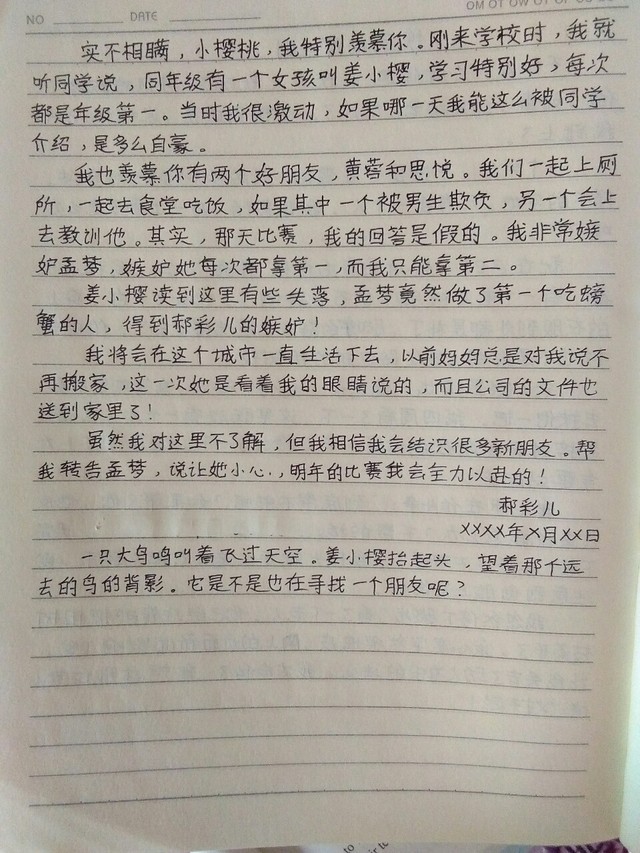 NO
DATE
实不相瞒，小樱桃，我特别羡慕你。刚来学校时，我就
听同学说，同年级有一个女孩叫姜小樱，学习特别好，每次
都是年级第一。当时我很激动，如果哪一天我能这么被同学
介绍，是多么自豪。
我也羡慕你有两个好朋友，黄蓉和思悦。我们一起上厕
所，一起去食堂吃饭，如果其中一个被男生欺负，另一个会上
去教训他。其实，那天比赛，我的回答是假的。我非常嫉
妒孟梦，嫉妒她每次都拿第一，而我只能拿第二。
姜小樱读到这里有些失落，孟梦竟然做了第一个吃螃
蟹的人，得到郝彩儿的嫉妒！
我将会在这个城市一直生活下去，以前妈妈总是对我说不
再搬家，这一次她是看着我的眼睛说的，而且公司的文件也
送到家里了！
虽然我对这里不了解，但我相信我会结识很多新朋友。帮
我转告孟梦，说让她小心，明年的比赛我会全力以赴的！
郝彩儿
XXXX年X月XX日
一只大鸟鸣叫着飞过天空。姜小樱抬起头，望着那个远
去的鸟的背影。它是不是也在寻找一个朋友呢？